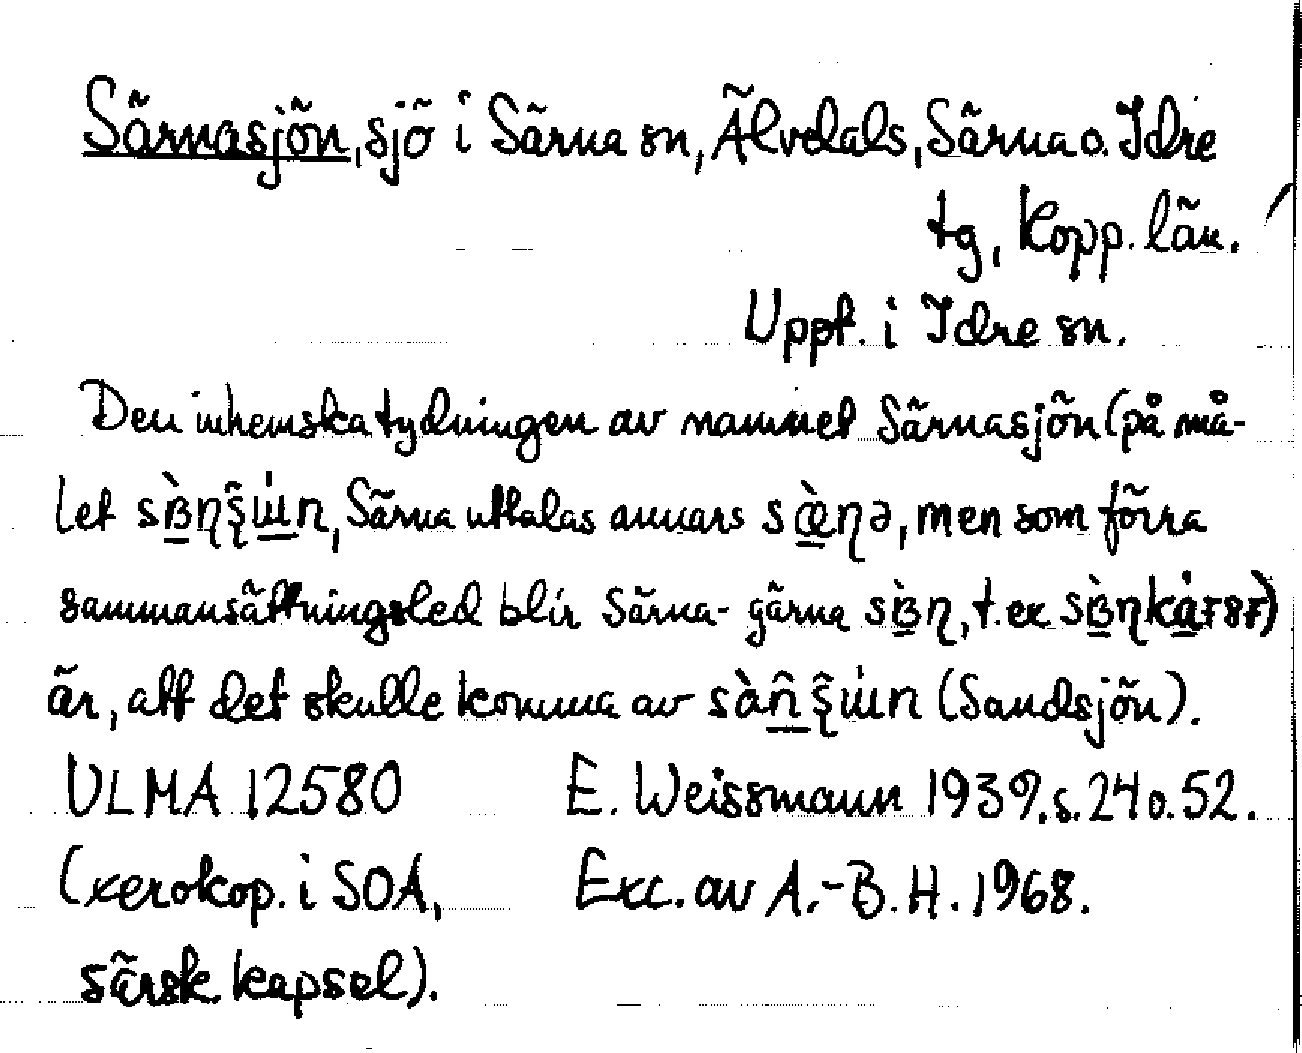 Särnasjön, sjö i Särna sn, Älvdals, Särna o. Idre
tg, Kopp. län.
Uppt. i Idre sn.
Den inhemska tydningen av namnet Särnasjön (på må-
let Särna uttalas annars men som förra
sammansättningsled blir Särna- gärna t. ex
är, att det skulle komma av (Sandsjön).
ULMA 12580 E. Weissmann 1939. s. 24 o. 52.
(xerokop. i SOA, Exc. av A.-B. H. 1968.
särsk. kapsel).